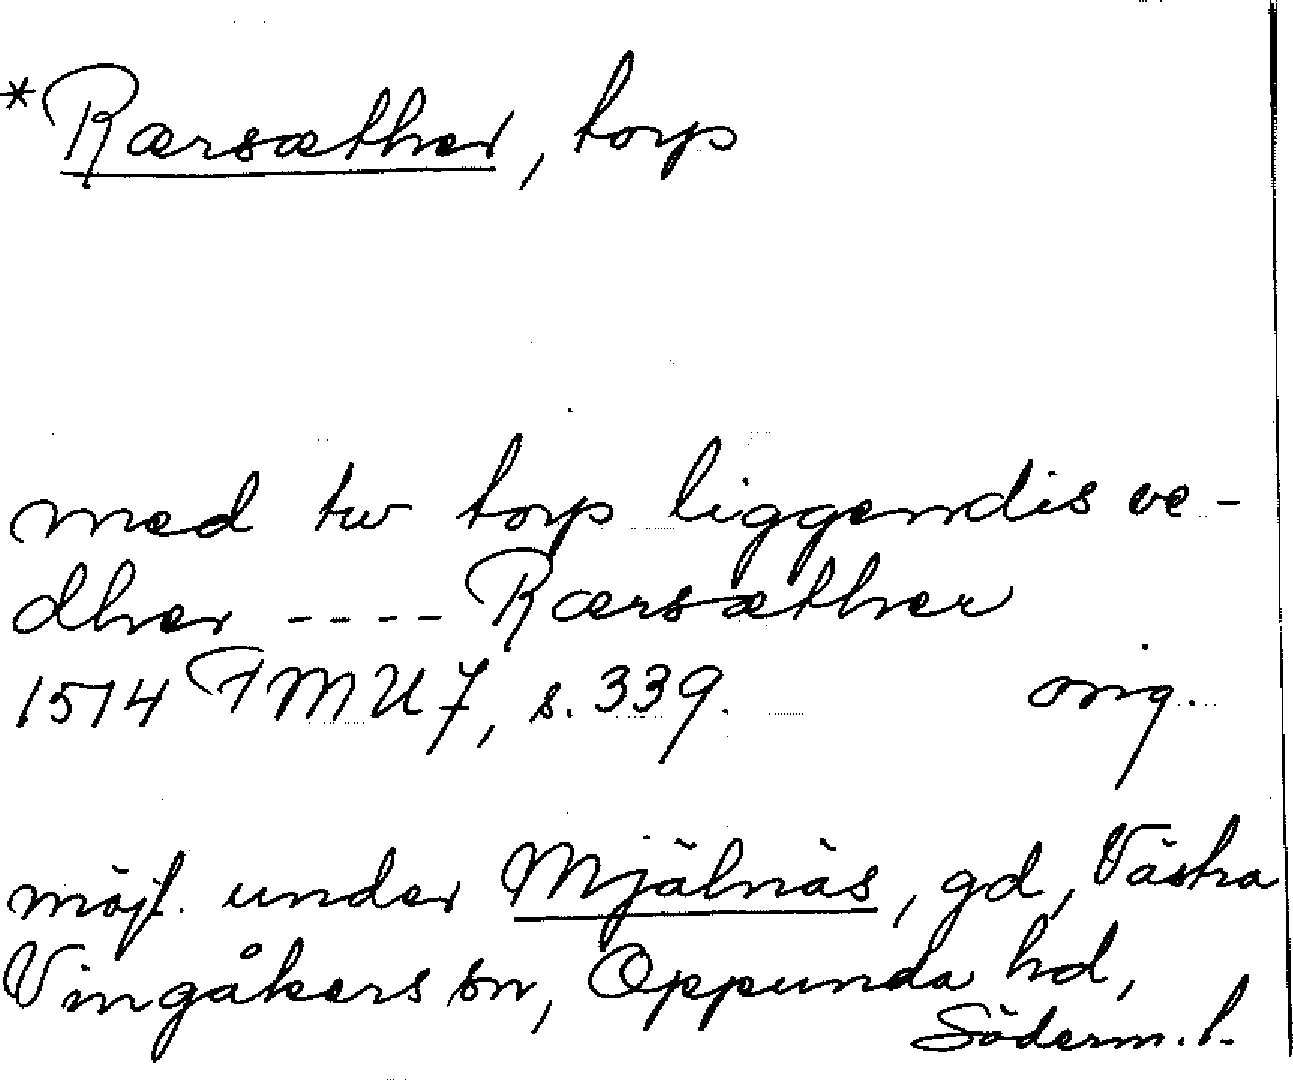 *Rærsæther, torp
med tw torp liggendis ve-
dher ---- Rærsæther
1514 FMU 7, s. 339. orig.
möjl. under Mjälnäs, gd, Västra
Vingåkers sn, Oppunda hd,
Söderm. l.